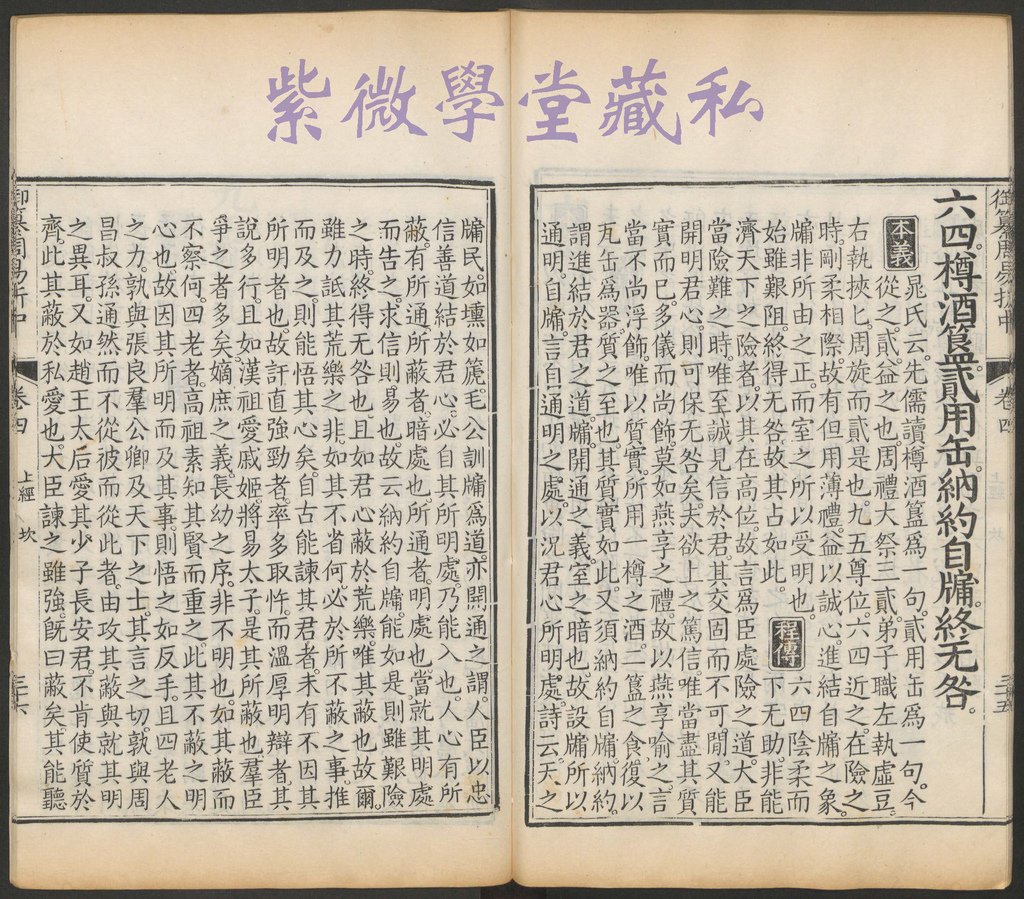 紫微學堂藏私
御纂周易折中
卷四
上經 坎
三十五
六四樽酒簋貳用缶納約自牖終无咎。
本義
晁氏云。先儒讀樽酒簋爲一句。貳用缶爲一句。今
從之。貳。益之也。周禮大祭三貳。弟子職左執虛豆。
右執挾匕。周旋而貳是也。九五尊位。六四近之。在險之
時。剛柔相際。故有但用薄禮。益以誠心。進結自牖之象。
牖非所由之正。而室之所以受明也。
始雖艱阻。終得无咎。故其占如此。
程傳
六四陰柔而
下无助。非能
濟天下之險者。以其在高位。故言爲臣處險之道。大臣
當險難之時。唯至誠見信於君。其交固而不可閒。又能
開明君心。則可保无咎矣。夫欲上之篤信。唯當盡其質
實而已。多儀而尚飾。莫如燕享之禮。故以燕享喻之。言
當不尚浮飾。唯以質實。所用一樽之酒。二簋之食。復以
瓦缶爲器。質之至也。其質實如此。又須納約自牖。納約。
謂進結於君之道。牖開通之義。室之暗也。故設牖所以
通明。自牖。言自通明之處。以況君心所明處。詩云。天之
牖民。如壎如篪。毛公訓牖爲道。亦開通之謂。人臣以忠
信善道結於君心。必自其所明處。乃能入也。人心有所
蔽。有所通。所蔽者。暗處也。所通者。明處也。當就其明處
而告之。求信則易也。故云納約自牖。能如是則雖艱險
之時。終得无咎也。且如君心蔽於荒樂。唯其蔽也故爾。
雖力詆其荒樂之非。如其不省何。必於所不蔽之事。推
而及之。則能悟其心矣。自古能諫其君者。未有不因其
所明者也。故訐直強勁者。率多取忤。而溫厚明辯者。其
說多行。且如漢祖愛戚姬。將易太子。是其所蔽也。羣臣
爭之者多矣。嫡庶之義。長幼之序。非不明也。如其蔽而
不察何。四老者。高祖素知其賢而重之。此其不蔽之明
心也。故因其所明而及其事。則悟之如反手。且四老人
之力。孰與張良羣公卿及天下之士。其言之切。孰與周
昌叔孫通。然而不從彼而從此者。由攻其蔽與就其明
之異耳。又如趙王太后愛其少子長安君。不肯使質於
齊。此其蔽於私愛也。大臣諫之雖強。旣曰蔽矣。其能聽
御纂周易折中
卷四
上經 坎
三十六